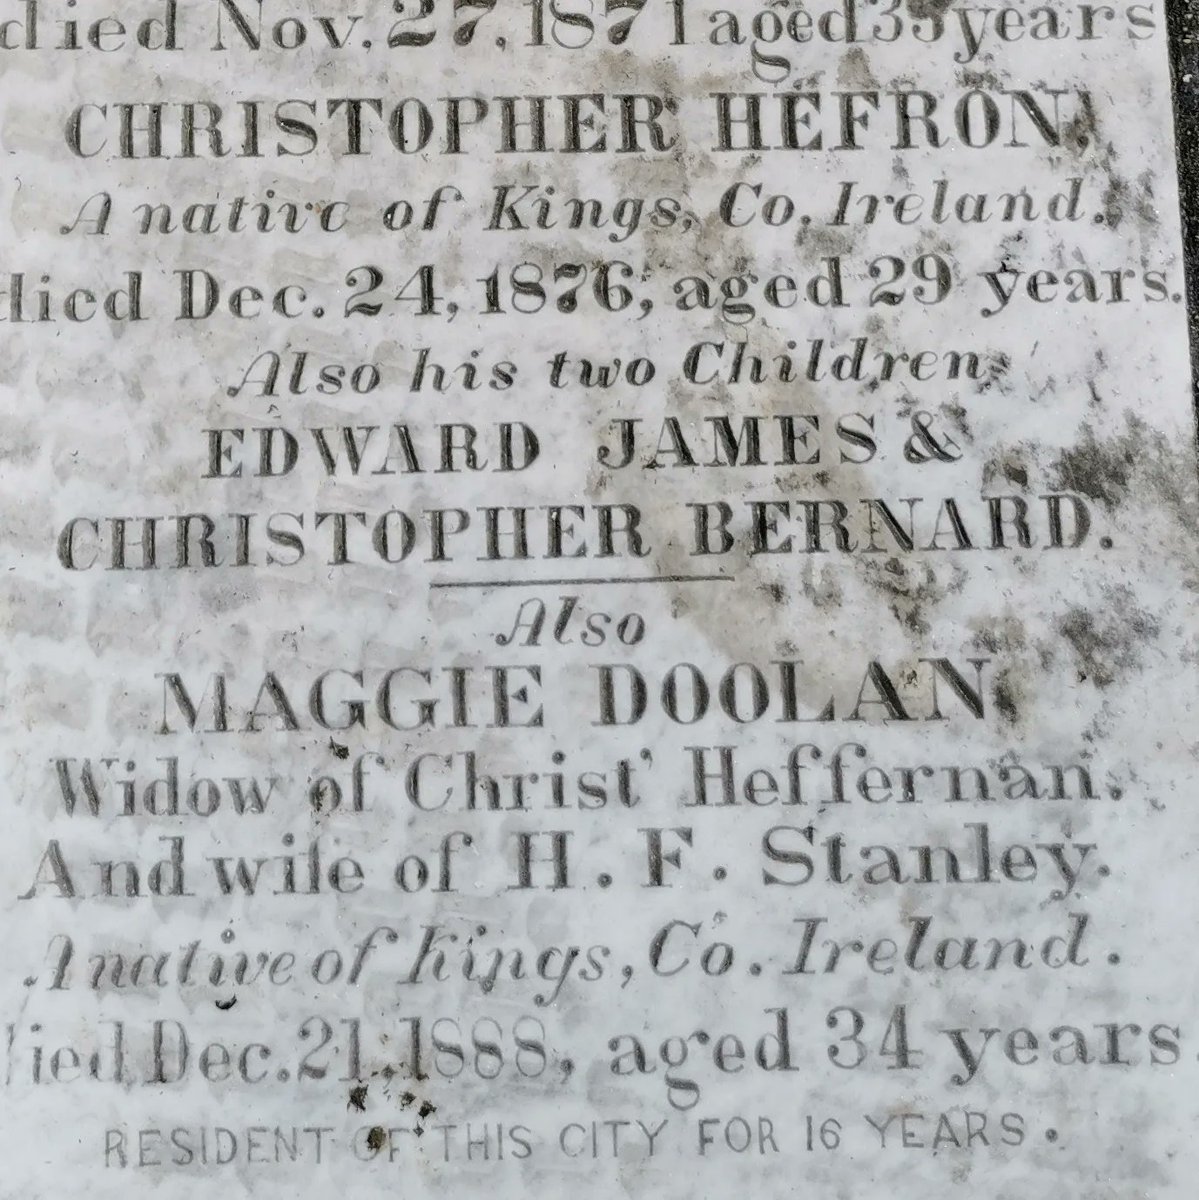 died Nov. 27, 1871 aged 35 years
CHRISTOPHER HEFRON,
A native of Kings, Co. Ireland.
died Dec. 24, 1876, aged 29 years.
Also his two Children,
EDWARD JAMES &
CHRISTOPHER BERNARD.
Also
MAGGIE DOOLAN
Widow of Christ' Heffernan.
And wife of H. F. Stanley.
A native of Kings, Co. Ireland.
died Dec. 21, 1888, aged 34 years
RESIDENT OF THIS CITY FOR 16 YEARS.